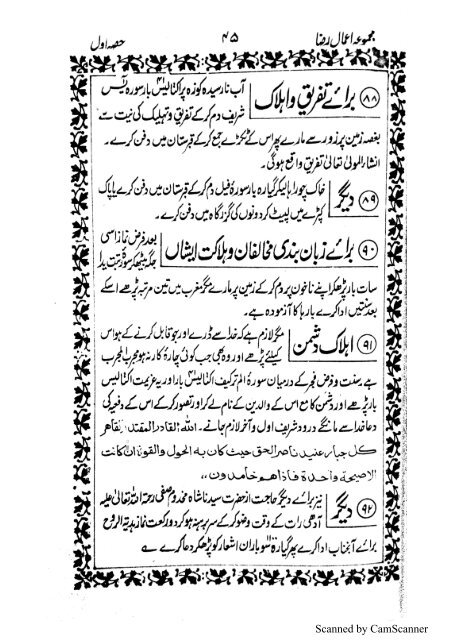 مجموعہ اعمال رضا
۴۵
حصہ اول
۸۸ برائے تفریق و اہلاک
آب نارسیدہ کوزہ پر اکتالیس بار سورہ یٰس
شریف دم کر کے تفریق و تہلیک کی نیت سے
بغصہ زمین پر زور سے مارے پھر اس کے ٹکڑے جمع کر کے قبرستان میں دفن کرے۔
انشاء المولیٰ تعالیٰ تفریق واقع ہوگی۔
۸۹ دیگر
خاک چوراہا لیکر گیارہ بار سورۂ فیل دم کر کے قبرستان میں دفن کرے یا پاک
کپڑے میں لپیٹ کر دونوں کی گزرگاہ میں دفن کرے۔
۹۰ برائے زبان بندی مخالفان و ہلاکت ایشاں
بعد فرض نماز اسی
جگہ بیٹھکر سورۂ تبت یدا
سات بار پڑھکر اپنے ناخون پر دم کر کے زمین پر مارے مگر مغرب میں تین مرتبہ پڑھے اسکے
بعد سنتیں ادا کرے بارہا کا آزمودہ ہے۔
۹۱ اہلاک دشمن
مگر لازم ہے کہ خدا سے ڈرے اور جو قابل کرنے کے ہو اس
کیلئے پڑھے اور وہ بھی جب کوئی چارۂ کار نہ ہو مجرب المجرب
ہے سنت و فرض فجر کے درمیان سورۂ الم ترکیف اکتالیس بار اور یہ عزیمت اکتالیس
بار پڑھے اور دشمن کا مع اس کے والدین کے نام لے کر اور تصور کر کے اس کے دفعیہ کی
دعا خدا سے مانگے درود شریف اول و آخر لازم جانے۔ اللہ القادر المقتدر قاهر
كل جبار عنيد ناصر الحق حيث كان به الحول والقوة ان كانت
الا صيحة واحدة فاذا هم خامدون
۹۲ دیگر
نیز برائے دیگر حاجت از حضرت سیدنا شاہ مخدوم صفی رحمۃ اللہ تعالیٰ علیہ
آدھی رات کے وقت وضو کر کے سر برہنہ ہو کر دو رکعت نماز ہدیۃ الروح
برائے آنجناب ادا کرے پھر گیارہ سو بار ان اشعار کو پڑھکر دعا کرے
Scanned by CamScanner